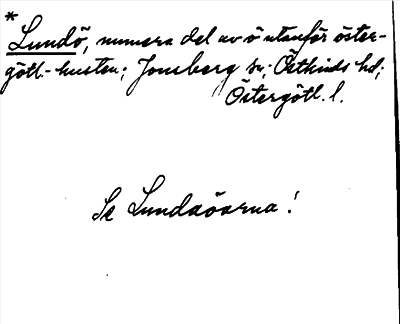 *
Lundö, numera del av ö utanför öster-
götl.-kusten; Jonsberg sn; Östkinds hd;
Östergötl. l.
Se Lundaöarna!